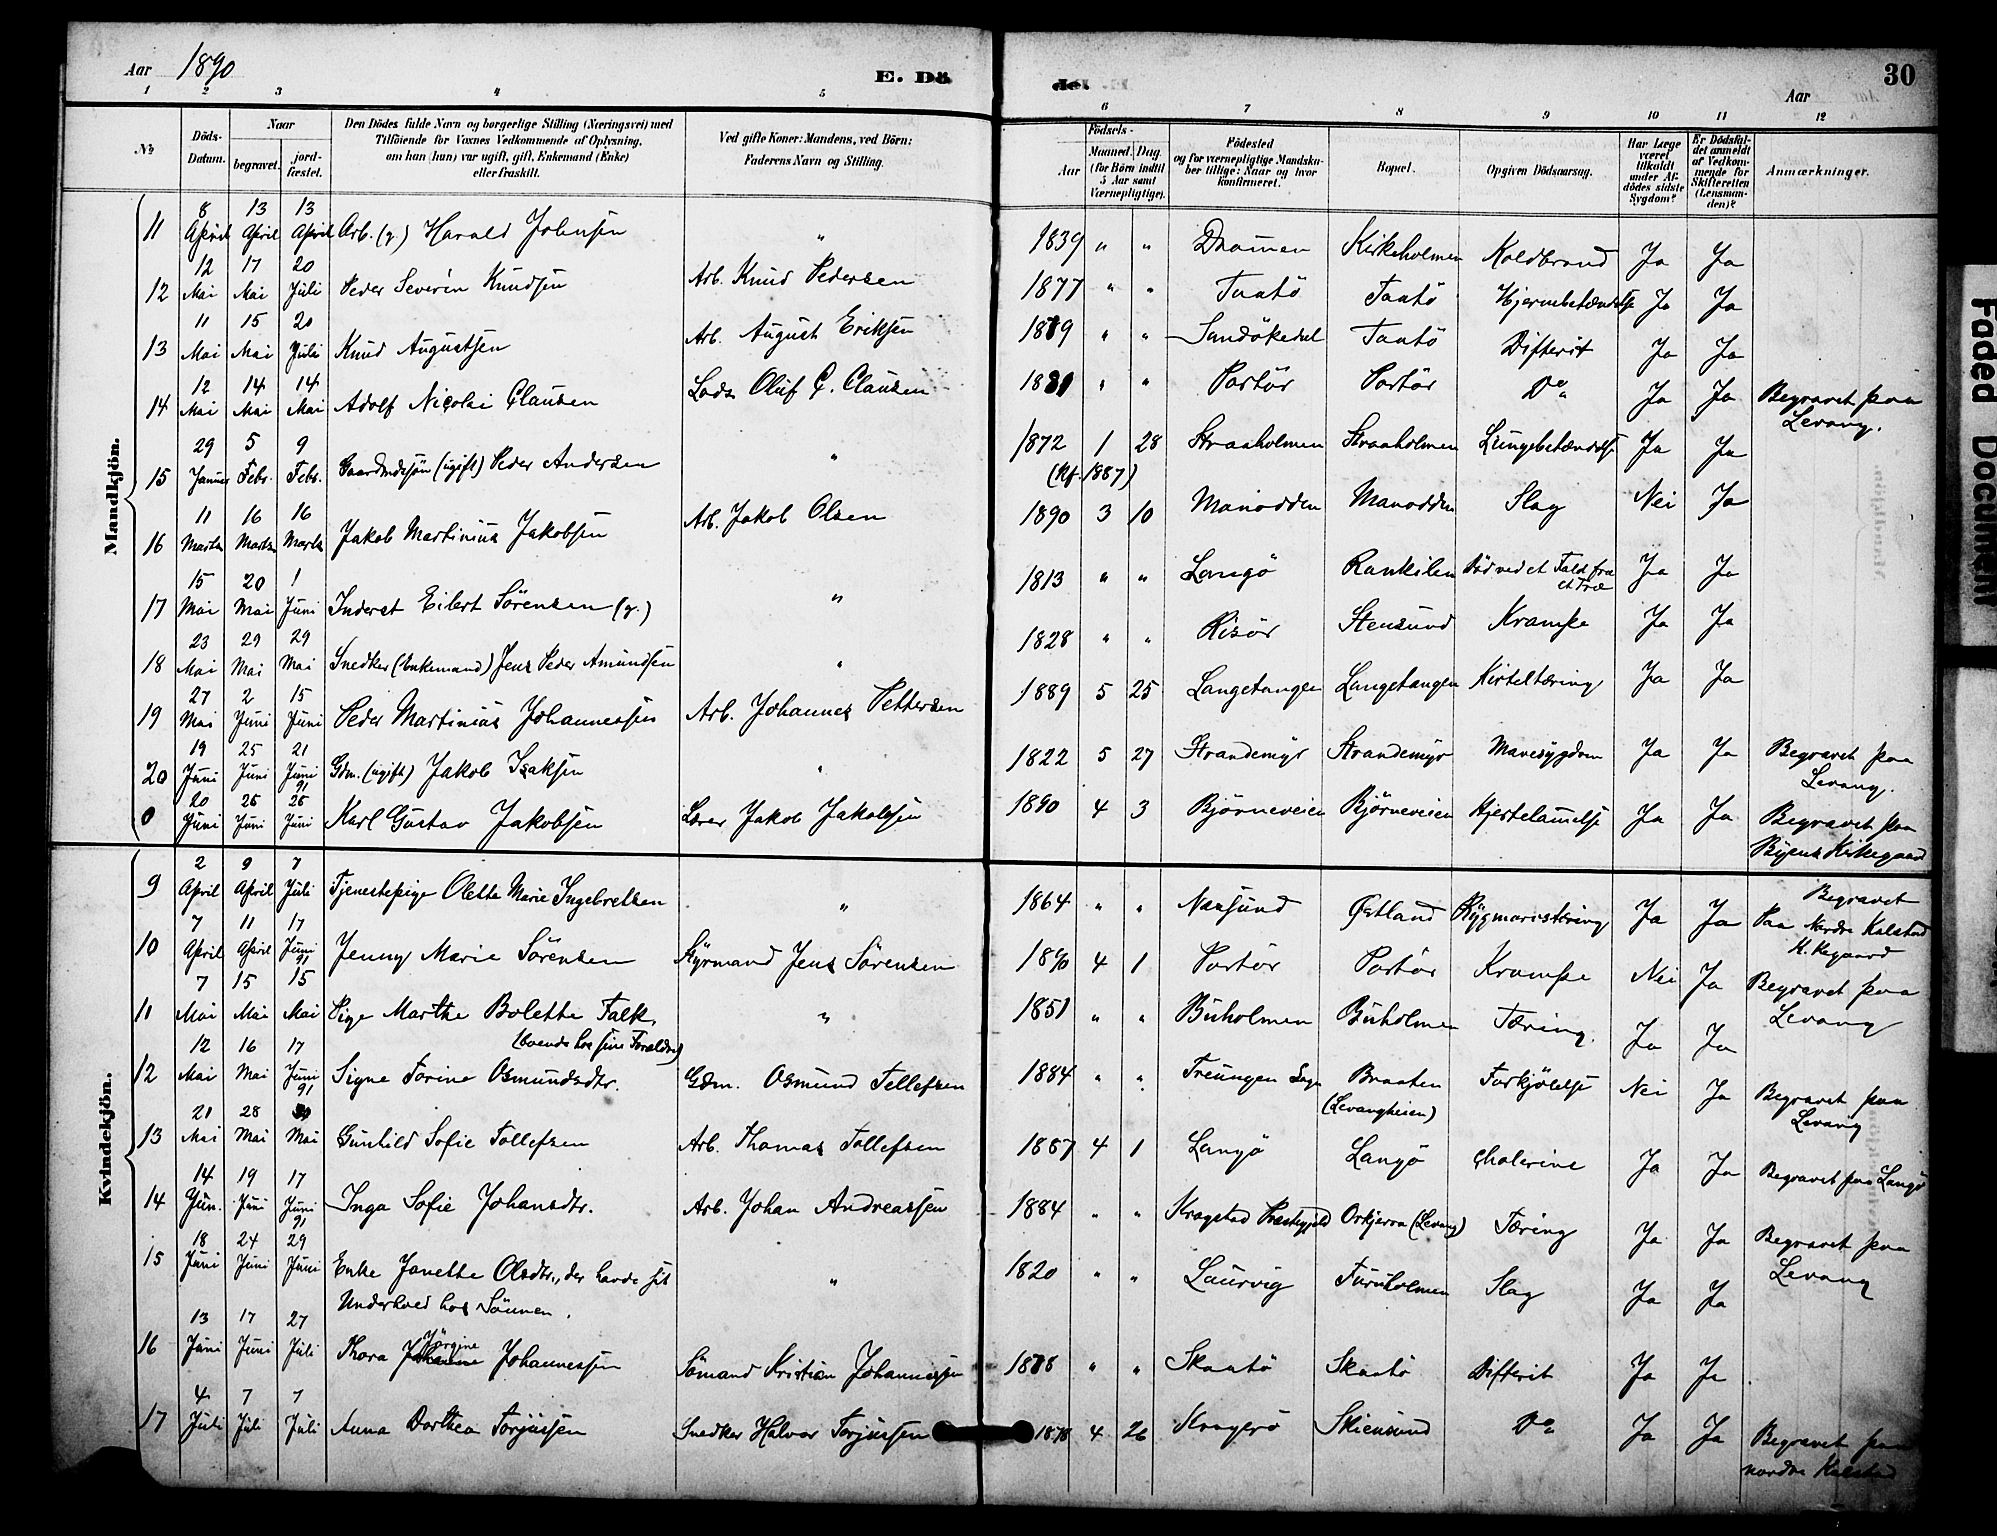 Aar 1890
E. Dö
de.
30
Aar
1 2 3 4 5 6 7 8 9 10 11 12
No
Döds-Datum.
Naar
begravet.
jord-fæstet.
Den Dödes fulde Navn og borgerlige Stilling (Næringsvei) med
Tilföiende for Voxnes Vedkommende af Oplysning,
om han (hun) var ugift, gift, Enkemand (Enke)
eller fraskilt.
Ved gifte Koner: Mandens, ved Börn:
Faderens Navn og Stilling.
Födsels-
Aar
Maaned. Dag.
(for Börn indtil
5 Aar samt
Værnepligtige).
Födested
og for værnepligtige Mandska-
ber tillige: Naar og hvor
konfirmeret.
Bopæl.
Opgiven Dödsaarsag.
Har Læge
været
tilkaldt
under Af-
dödes sidste
Sygdom?
Er Dödsfal-
det anmeldt
af Vedkom-
mende for
Skifteretten
(Lensman-
den)?
Anmærkninger.
Mandkjön.
11 8 April 13 April 13 April Arb. (g.) Harald Johnsen " 1839 " " Drammen Kirkeholmen Koldbrand Ja Ja
12 12 Mai 17 Mai 20 Juli Peder Severin Knudsen Arb. Knud Pedersen 1877 " " Taatö Taatö Hjernebetændelse Ja Ja
13 11 Mai 15 Mai 20 Juli Knud Augustsen Arb. August Eriksen 1889 " " Sandökedal Taatö Difterit Ja Ja
14 12 Mai 14 Mai 14 Mai Adolf Nicolai Clausen Lods Oluf C. Clausen 1881 " " Portör Portör Do Ja Ja Begravet paa
Levang.
15 29 Januar 5 Febr. 9 Febr. Gaardmdssön (ugift) Peder Andersen " 1872 1 28 Straaholmen Straaholmen Lungebetændelse Ja Ja
(Kf. 1887)
16 11 Marts 16 Marts 16 Marts Jakob Martinius Jakobsen Arb. Jakob Olsen 1890 3 10 Manodden Manodden Slag Nei Ja
17 15 Mai 20 Mai 1 Juni Inderst Eilert Sörensen (g.) " 1813 " " Langö Rankilen Död ved et Fald fra
et Træ Ja Ja
18 23 Mai 29 Mai 29 Mai Snedker (Enkemand) Jens Peder Amundsen " 1828 " " Risör Stensund Krampe Ja Ja
19 27 Mai 2 Juni 15 Juni Peder Martinius Johannessen Arb. Johannes Pettersen 1889 5 25 Langetangen Langetangen Kirteltæring Ja Ja
20 19 Juni 25 Juni 21 Juni 91 Gdm. (ugift) Jakob Isaksen " 1822 5 27 Strandemyr Strandemyr Mavesygdom Ja Ja Begravet paa
Levang.
0 20 Juni 25 Juni 25 Juni Karl Gustav Jakobsen Lærer Jakob Jakobsen 1890 4 3 Bjørneveien Bjørneveien Hjertelammelse Ja Ja Begravet paa
Byens Kirkegaard
Kvindekjön.
9 2 April 9 April 7 Juli Tjenestepige Olette Marie Ingebretsen " 1864 " " Næssund Østland Rygmarvstæring Ja Ja Begravet
Paa Nordre Kalstad
K.Kegaard
10 7 April 11 April 17 Juni 91 Jenny Marie Sörensen Styrmand Jens Sörensen 1890 4 1 Portör Portör Krampe Nei Ja Begravet paa
Levang
11 7 Mai 15 Mai 15 Mai Pige Marthe Bolette Falk.
(boende hos sine Forældre) " 1851 " " Buholmen Buholmen Tæring. Ja Ja
12 12 Mai 16 Mai 17 Juni 91 Signe Torine Osmundsdtr. Gdm. Osmund Tellefsen 1884 " " Treungen Sogn Braaten
(Levangheien) Forkjölelse Nei Ja Begravet paa
Levang
13 21 Mai 28 Mai Mai Gunhild Sofie Tollefsen Arb. Thomas Tollefsen 1887 4 1 Langö Langö Cholerine Ja Ja Begravet paa Langö
14 14 Jun. 19 Juni 17 Juni 91 Inga Sofie Johansdtr. Arb. Johan Andreassen 1884 " " Kragstad Præstegjeld (Levang) Tæring Ja Ja Begravet paa
Levang
15 18 Juni 24 Juni 29 Juni Enke Janette Olsdtr., der havde sit
Underhold hos Sönnen. " 1820 " " Laurvig Furuholmen Slag Ja Ja
16 13 Juni 17 Juni 27 Juli Thora Jörgine Johannessen Sömand Kristian Johannessen 1888 " " Skaatö Skaatö Difterit Ja Ja
17 4 Juli 7 Juli 7 Juli Anna Dorthea Torjussen Snedker Halvor Torjussen 1878 4 26 Kragerö Skiensund Do Ja Ja Begravet paa
nordre Kalstad
Faded Document